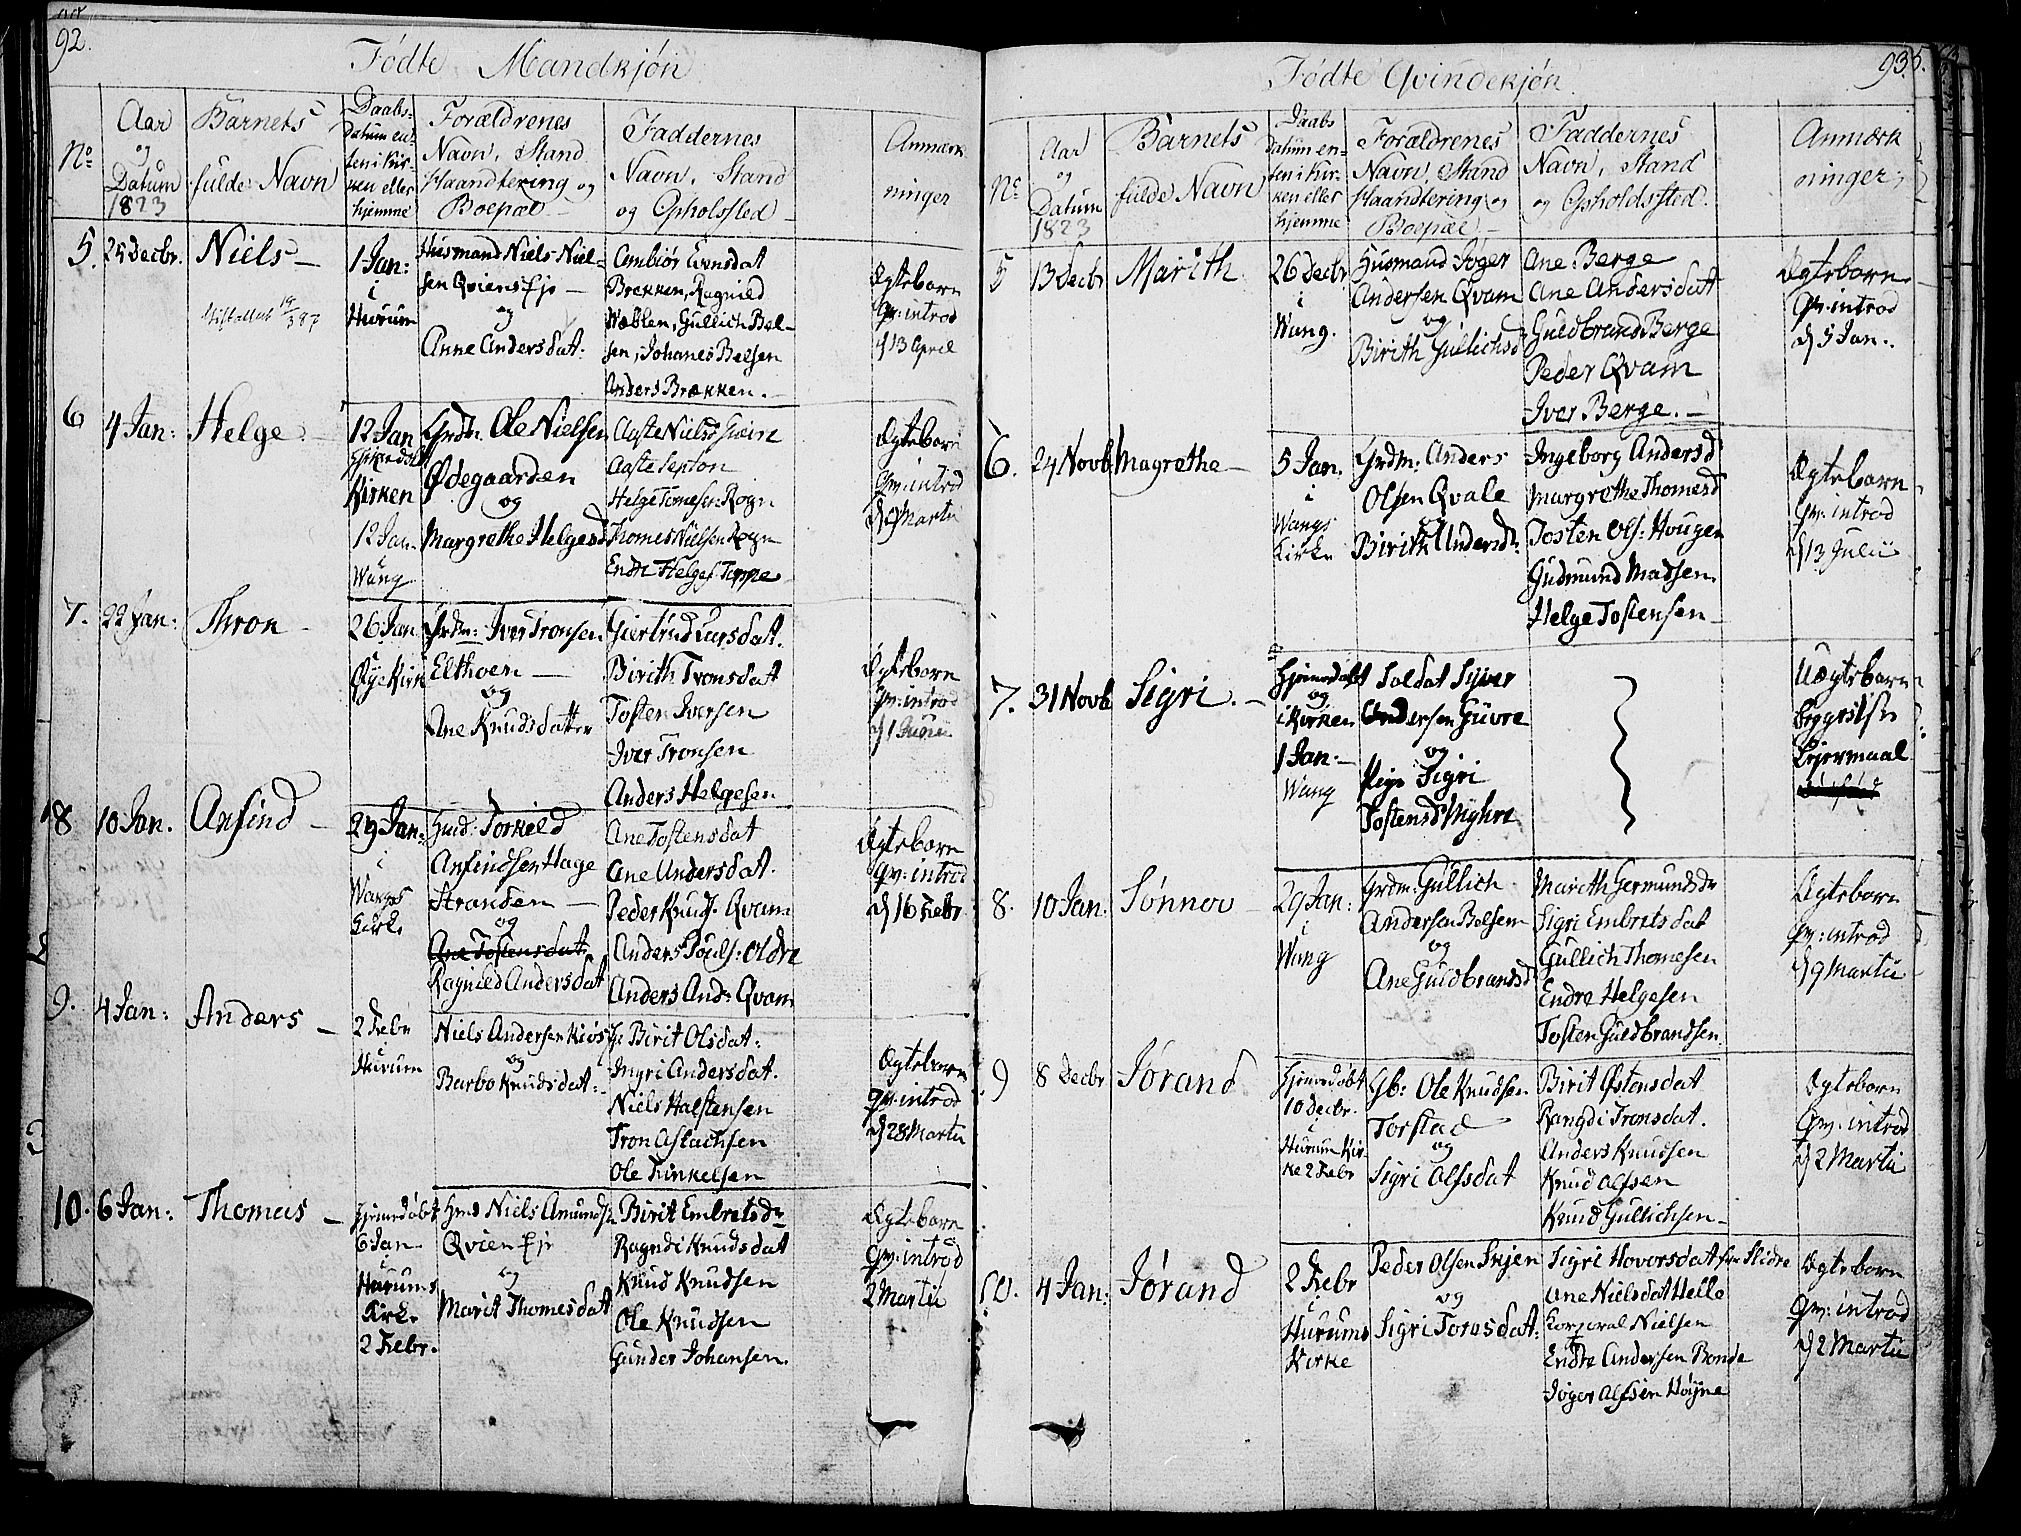 92.
Fødte Mandkjön
No
Aar
og
Datum
1823
Barnets
fulde Navn
Daabs-
datum en-
ten i Kir-
ken eller
hjemme
Forældrenes
Navn, Stand
Haandtering og
Boepæl
Faddernes
Navn, Stand
og Opholssted
Anmærk
ninger
5.
25 Decbr.
Niels
1 Jan:
i
Hurum
Husmand Niels Niel-
sen Qviens Eje
og
Anne Andersdat:
Ambiør Evensdat
Brekken, Ragnild
Wæblen, Gullich Bel-
sen, Johanes Belsen
Anders Brækken.
Ægtebarn
Qv: introd
d 13 April
6
4 Jan:
Helge
12 Jan
Hjemdøbt
Kirken
12 Jan.
Wang
Grdm. Ole Nielsen
Ødegaarden
og
Margrethe Helgesd
Aaste Nielsd
Aaste Septon
Helge Tomesen Rogn
Thomes Nielsen Rogn
Endre Helges Teppe
Ægtebarn
Qv: introd
d 9 Martii
7.
22 Jan:
Thron
26 Jan
Øye Kirk
Grdm: Iver Tronsen
Elthoen
og
Ane Knudsdatter
Giertrud Larsdat.
Birith Tronsdat
Tosten Iversen
Iver Tronsen
Anders Helgesen
Ægtebarn
Qv: introd
d 1 Junii
8
10 Jan.
Anfind
29 Jan:
i
Wangs
Kirke
Husd: Torkild
Anfindsen Hage
Stranden
og
Ane Tostensdat
Ragnild Andersdat
Ane Tostensdat
Ane Andersdat.
Peder Knuds. Qvam
Anders Pouls: Oldre
Anders And: Qvam
Ægtebarn
Qv: introd
d 16 Febr
9.
4 Jan:
Anders
2 Febr
i
Hurum
Niels Andersen Kiøs
og
Barbo Knudsdat:
Birit Olsdat:
Ingri Andersdat.
Niels Halstensen
Tron Aslachsen
Ole Finkelsen
Ægtebarn
Qv: introd
d 28 Martii
10.
6 Jan:
Thomas
Hjemedøbt
6 Jan
i
Hurums
Kirke
2 Febr.
Hmd Niels Amunds
Qvien Eje
og
Marit Thomesdat
Birit Embretsdr
Ragndi Knudsdat
Knud Knudsen
Ole Knudsen
Gunder Johansen.
Ægtebarn
Qv: introd
2 Martii
93
Fødte Qvindekjön
No
Aar
og
Datum
1823
Barnets
fulde Navn
Daabs
Datum en-
ten i Kir-
ken eller
hjemme
Forældrenes
Navn, Stand
Haandtering og
Boepæl
Faddernes
Navn, Stand
og Opholdssted.
Anmærk
ninger
5
13 Decbr
Marith
26 Decbr
i
Wang.
Husmand Jøger
Andersen Qvam
og
Birith Gullichsd
Ane Berge
Ane Andersdat
Guldbrand Berge
Peder Qvam
Iver Berge.
Ægtebarn
Qv: introd
d 5 Jan.
6.
24 Novb
Magrethe
5 Jan.
i
Wangs
Kirke
Grdm: Anders
Olsen Qvale
og
Birith Andersdr:
Ingeborg Andersd
Margrethe Thomesd
Tosten Ols: Hougen
Gudmund Madsen.
Helge Tostensen
Ægtebarn
Qv: introd
d 13 Julii
7.
31 Novb
Sigri.
Hjemedøbt
og
i Kirken
1 Jan:
Wang
Soldat Syver
Andersen Giuvre
og
Pige Sigri
Tostensd Myhre
Uægtebarn
Lejermaal
8.
10 Jan:
Sønnov
29 Jan:
i
Wang
Grdm: Gullich
Andersen Belsen
og
Ane Guldbrandsd
Marith Germundsdr
Sigri Embretsdat
Gullich Thomesen
Endre Helgesen
Tosten Guldbrandsen.
Ægtebarn
Qv: introd
d 9 Martii
9
8 Decbr
Jørand
Hjemedøbt
10 Decbr.
i
Hurum Kir-
ke 2 Febr
Gb: Ole Knudsen
Torstad
og
Sigri Olfsdat
Birit Østensdat
Rangdi Tronsdat.
Anders Knudsen
Knud Olfsen
Knud Gullichsen
Ægtebarn
Qv. introd
d 2 Martii
10.
4 Jan:
Jørand
2 Febr
i
Hurums
Kirke
Peder Olsen Skjen
og
Sigri Toresdat:
Sigri Hovorsdat fra Slidre
Ane Nielsdat Helle
Korporal Nielsen
Endre Andersen Bonde
Jøger Olfsen Høyne
Ægtebarn
Qv: introd
d 2 Martii